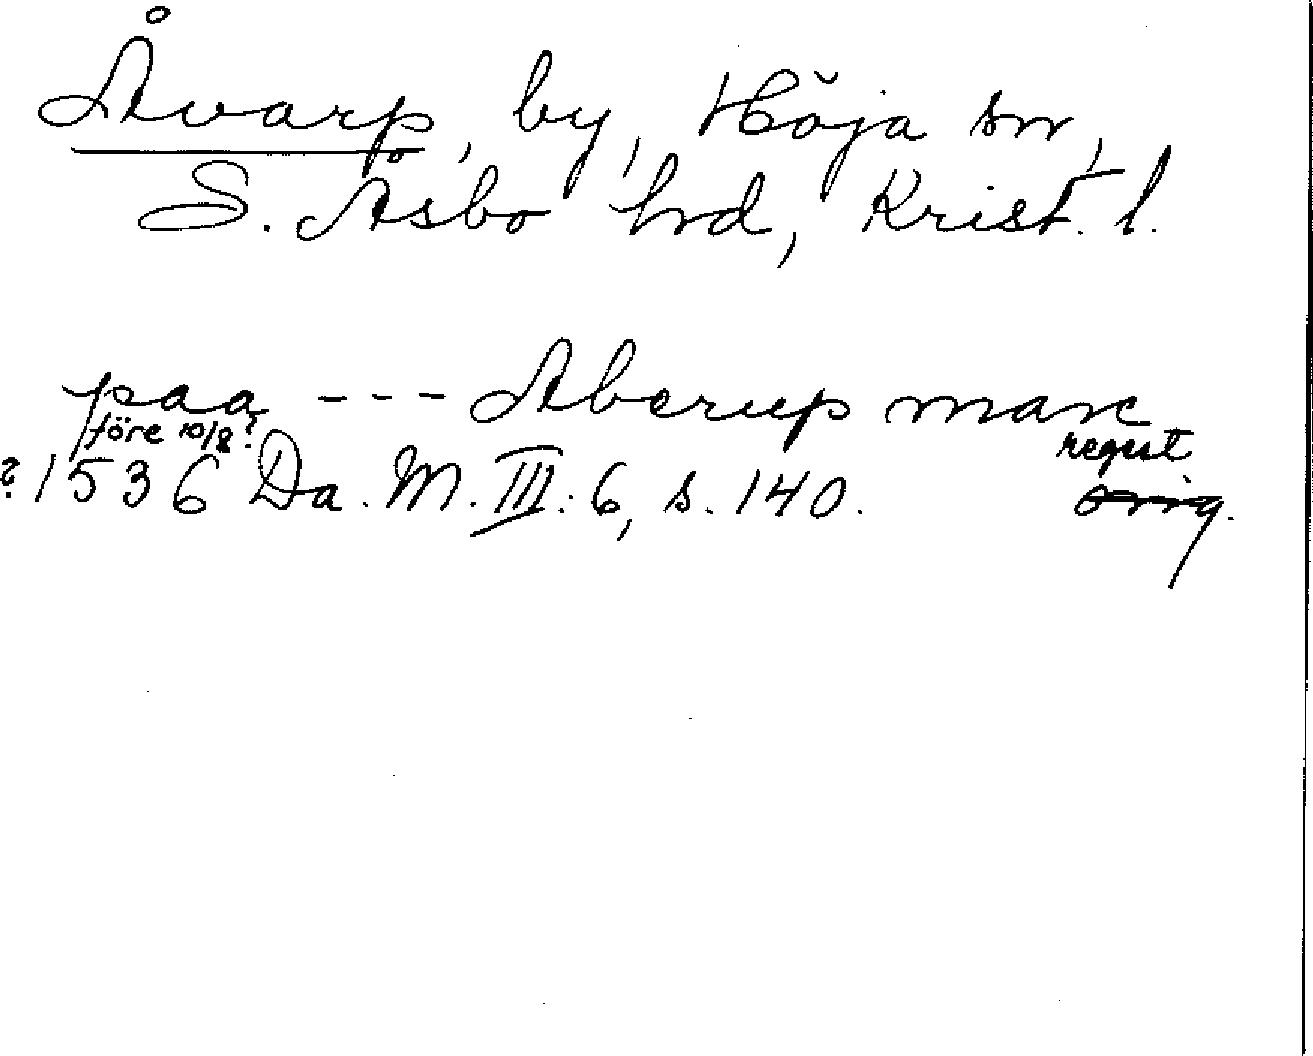 Åvarp, by, Höja sn,
S. Åsbo hd, Krist. l.
paa --- Aberup marc
före 10/8?
regist
?1536 Da. M. III: 6, s. 140. orig.